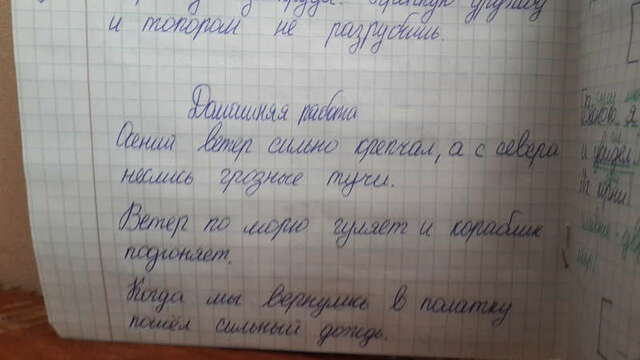 дружбу
и топором не разрубишь.
Домашняя работа
Осений ветер сильно крепчал, а с севера
неслись грозные тучи.
Ветер по морю гуляет и кораблик
подгоняет.
Когда мы вернулись в палатку
пошёл сильный дождь.